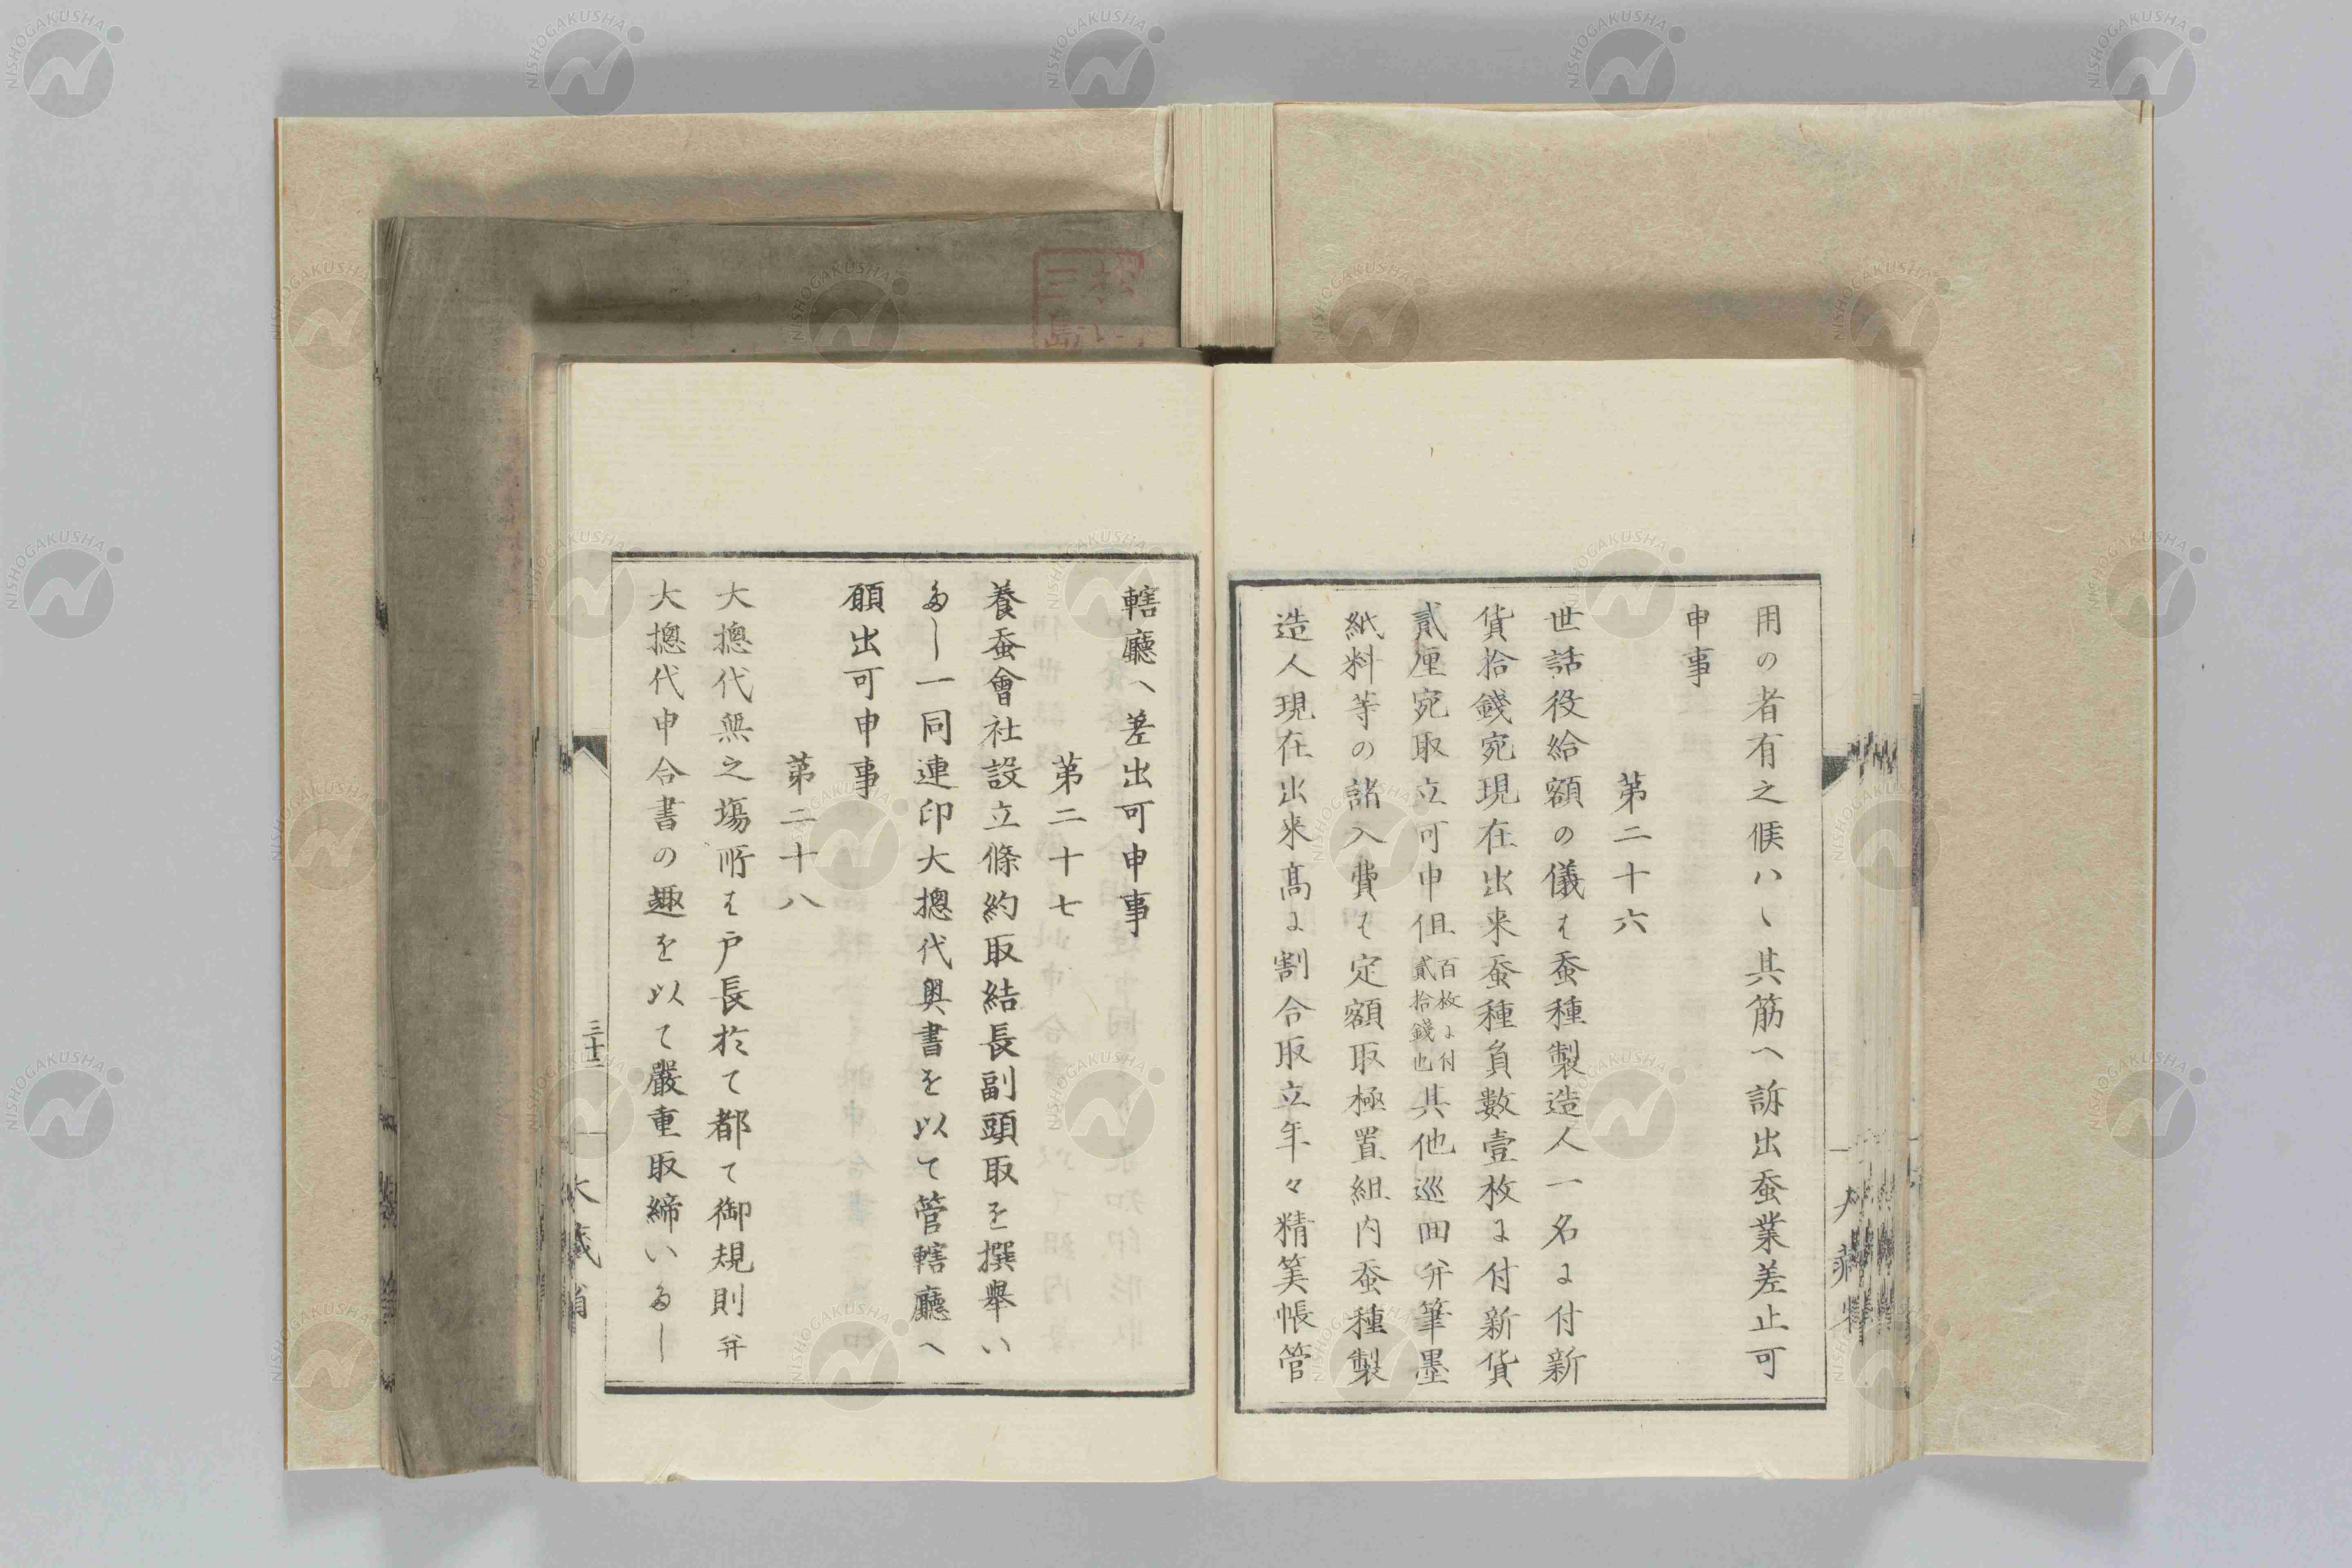 用の者有之候ハヽ其筋へ訴出蚕業差止可
申事
第二十六
世話役給額の儀は蚕種製造人一名に付新
貨拾錢宛現在出来蚕種負數壹枚に付新貨
貳厘宛取立可申但百枚に付貳拾錢也其他巡回并筆墨
紙料等の諸入費は定額取極置組内蚕種製
造人現在出来高に割合取立年々精筭帳管
轄廳へ差出可申事
第二十七
養蚕會社設立條約取結長副頭取を撰擧い
たし一同連印大摠代奥書を以て管轄廳へ
願出可申事
第二十八
大摠代無之塲所は戸長於て都て御規則并
大摠代申合書の趣を以て嚴重取締いたし
三十二
大藏省
NISHOGAKUSHA